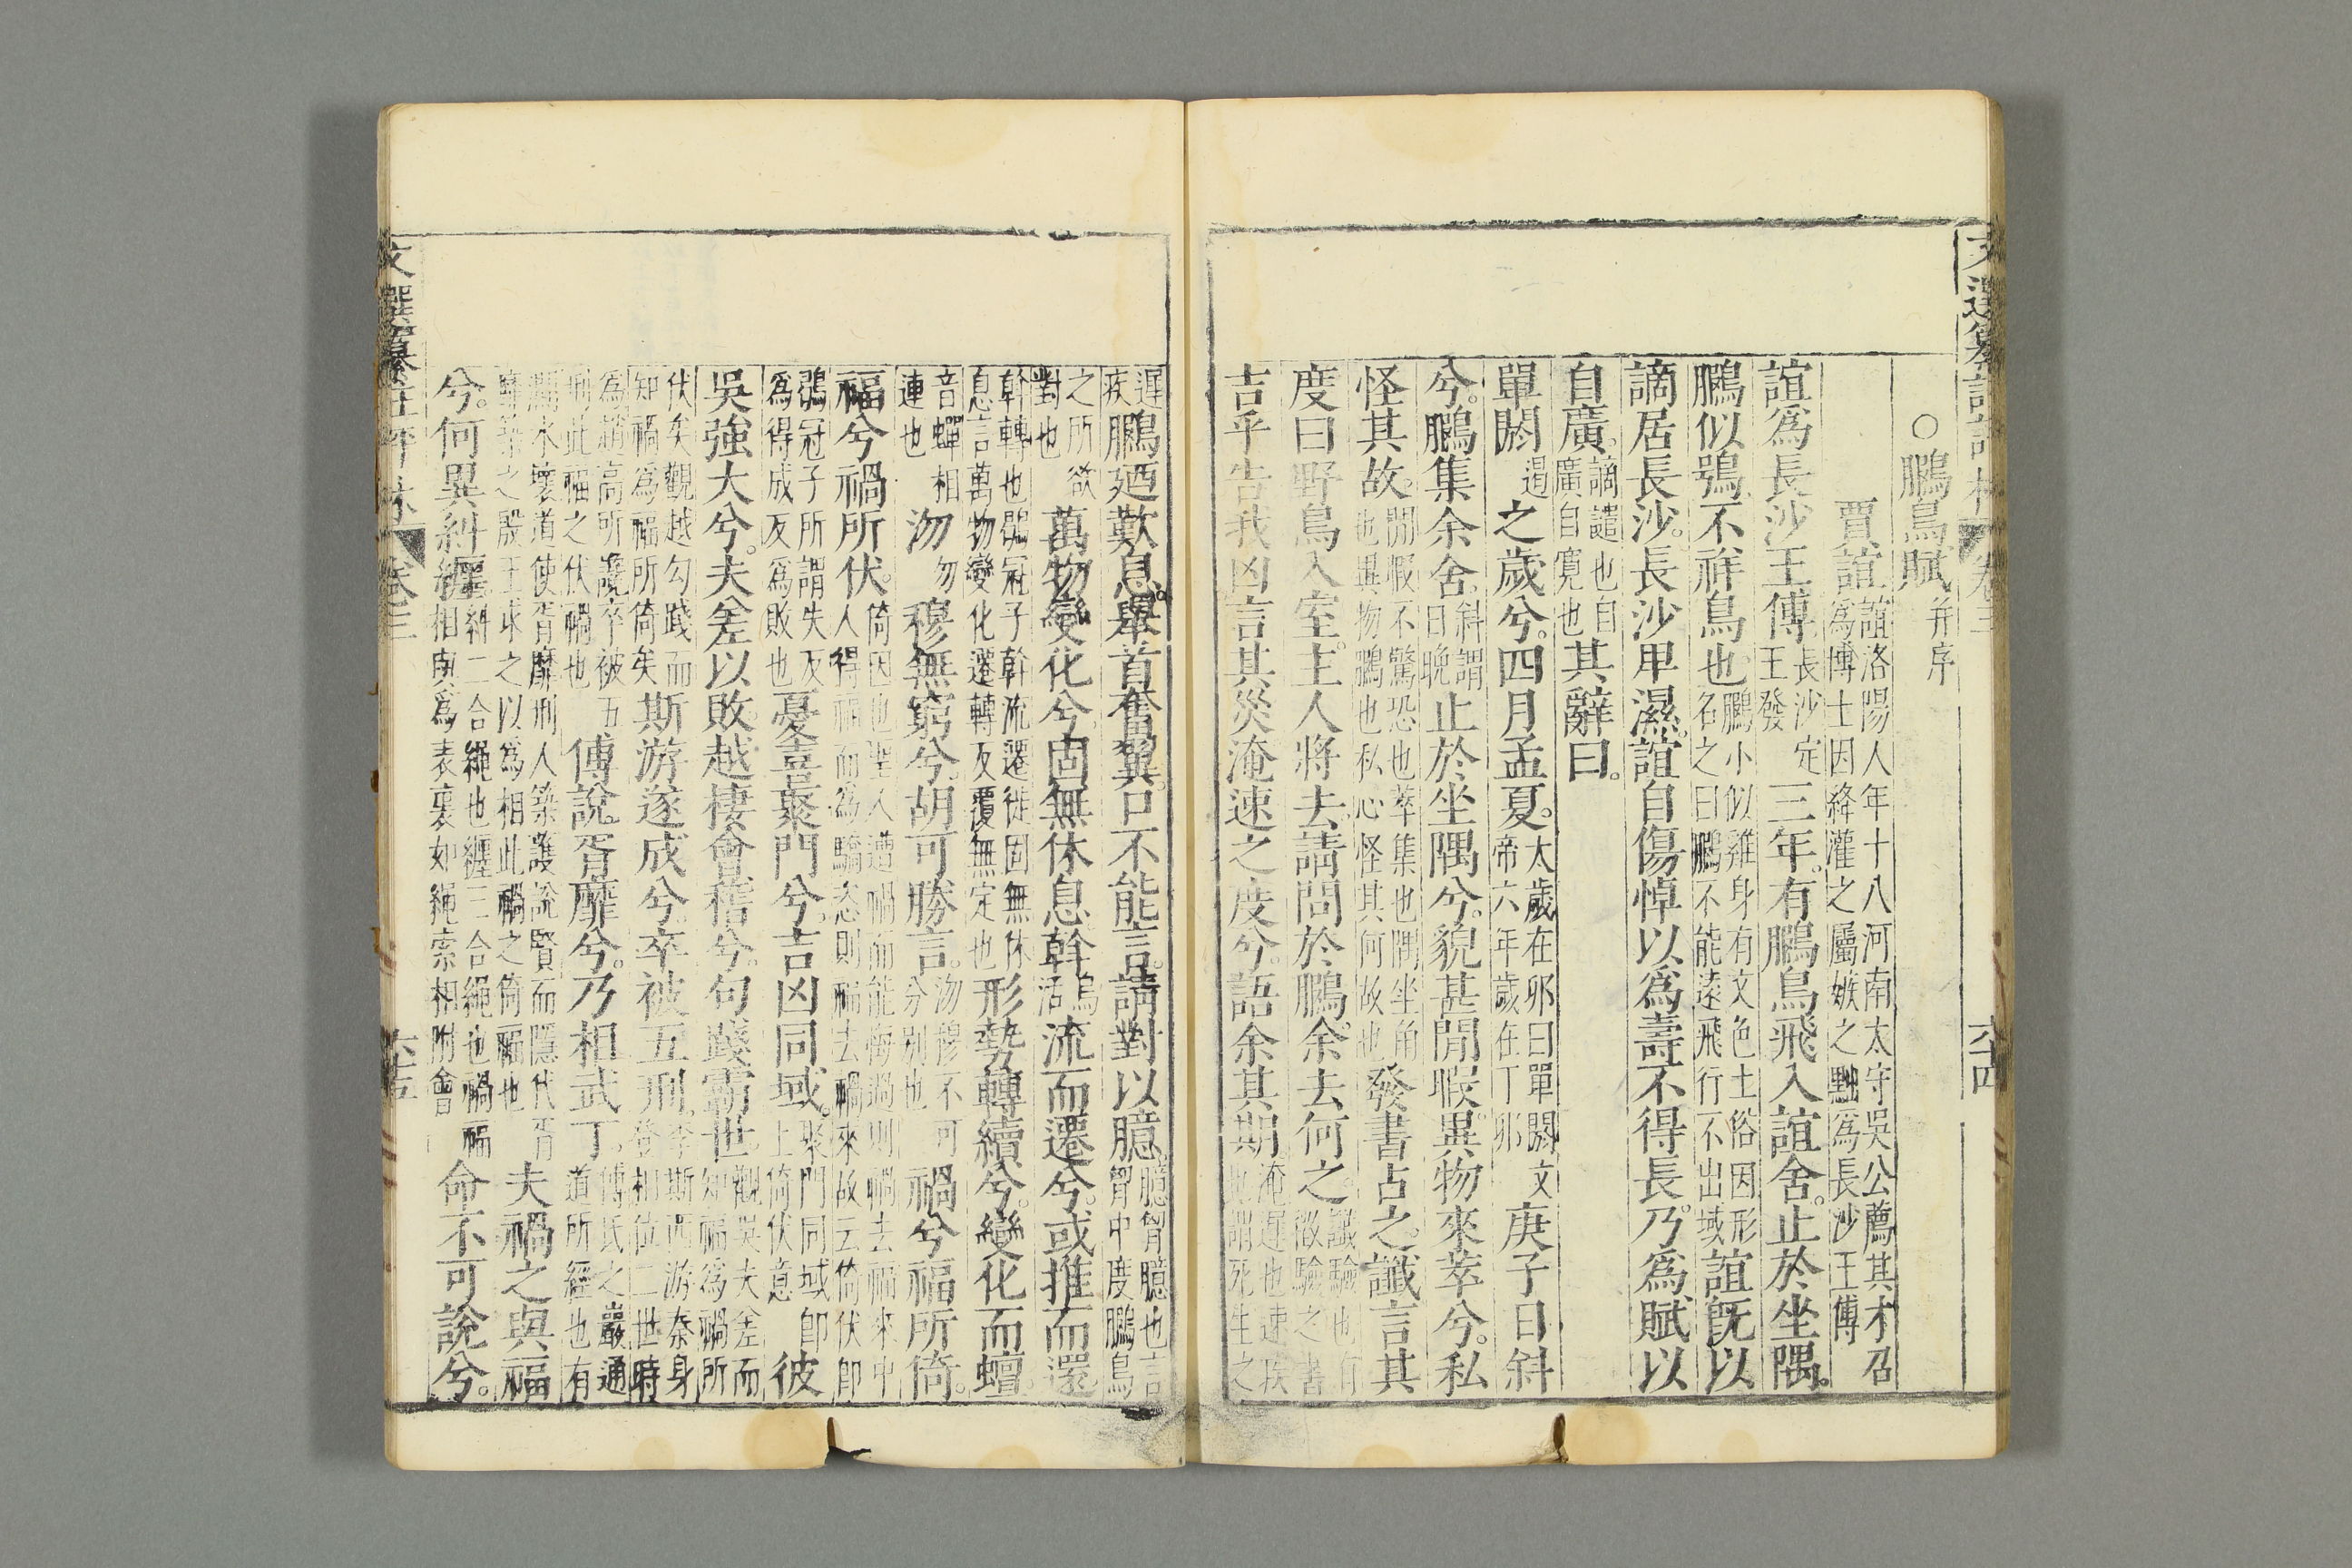 ○鵩鳥賦并序
賈誼誼洛陽人年十八河南太守吳公薦其才召爲博士因絳灌之屬嫉之黜爲長沙王傅
誼爲長沙王傅長沙定王發三年。有鵩鳥飛入誼舍。止於坐隅。
鵩似鴞不祥鳥也鵩小似雞身有文色土俗因形名之曰鵩不能遠飛行不出域誼旣以
謫居長沙。長沙卑濕。誼自傷悼以爲壽不得長乃爲賦以
自廣。謫譴也自廣自寛也其辭曰。
單閼遏之歲兮。四月孟夏。太歲在卯曰單閼文帝六年歲在丁卯庚子日斜
兮。鵩集余舍。斜謂日晚止於坐隅兮。貌甚閒暇異物來萃兮。私
怪其故。閒暇不驚恐也萃集也隅坐角也異物鵩也私心怪其何故也發書占之。讖言其
度曰野鳥入室。主人將去請問於鵩。余去何之。讖驗也有徵驗之書
吉乎告我凶言其災淹速之度兮。語余其期淹遲也速疾也謂死生之
遲疾鵩廼歎息。舉首奮翼口不能言。請對以臆。臆胷臆也言胷中度鵩鳥
之所欲對也萬物變化兮固無休息斡烏活流而遷兮。或推而還
斡轉也鶡冠子斡流遷徙固無休息言萬物變化遷轉反覆無定也形勢轉續兮。變化而蟺
音蟬相連也沕勿穆無窮兮。胡可勝言。沕穆不可分別也禍兮福所倚。
福兮禍所伏。倚因也聖人遭禍而能悔過則禍去福來中人得福而爲驕恣則福去禍來故云倚伏卽
鶡冠子所謂失反爲得成反爲敗也憂喜聚門兮。吉凶同域。聚門同域卽上倚伏意彼
吳強大兮。夫差以敗越棲會稽兮。句踐霸世觀吳夫差而知福爲禍所
伏矣觀越勾踐而知禍爲福所倚矣斯游遂成兮。卒被五刑。李斯西游秦身登相位二世時
爲趙高所讒卒被五刑此福之伏禍也傅說胥靡兮。乃相武丁。傅氏之巖通道所經也有
澗水壞道使胥靡刑人築護說賢而隱代胥靡築之殷王求之以爲相此禍之倚福也夫禍之與福
兮。何異糾纆糾二合繩也纆三合繩也禍福相與爲表裏如繩索相附會命不可說兮。